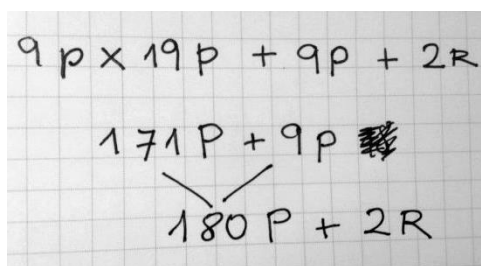 9p x 19p + 9p + 2R
171P + 9p
180P + 2R